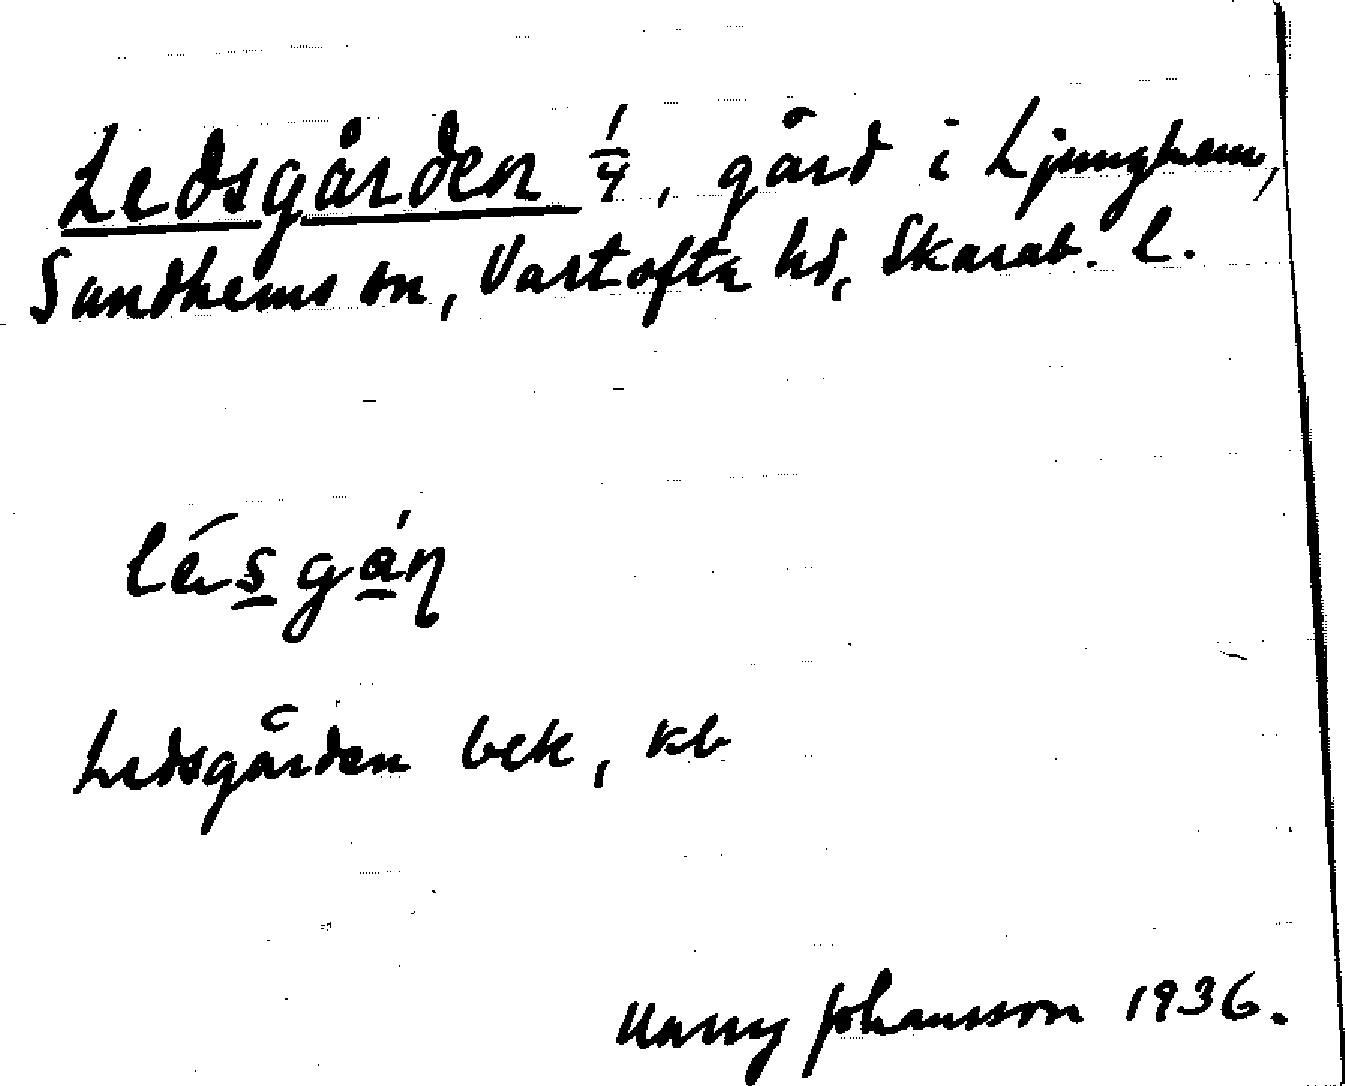 Ledsgården 1/4, gård i Ljunghem,
Sandhems sn, Vartofta hd, Skarab. l.
lésgáɳ
Ledsgården bek, kb
Harry Johansson 1936.